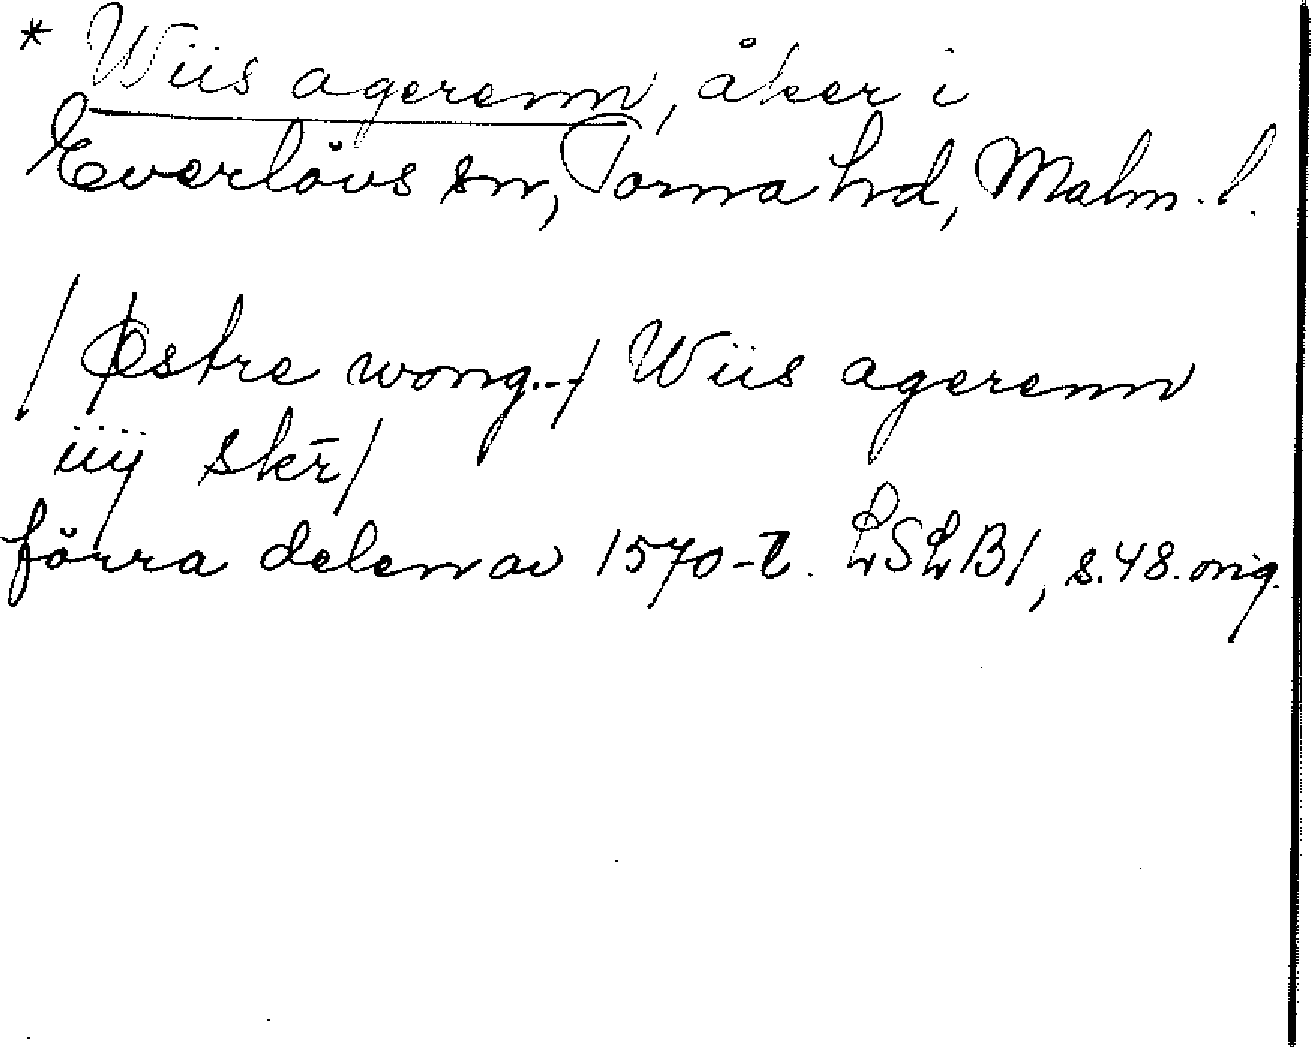 * Wiis agerenn, åker i
Everlövs sn, Torna hd, Malm. l.
/Østre wong.-/ Wiis agerenn
iiij skr̄/
förra delen av 1570-t. LSLB1, s.48.orig.